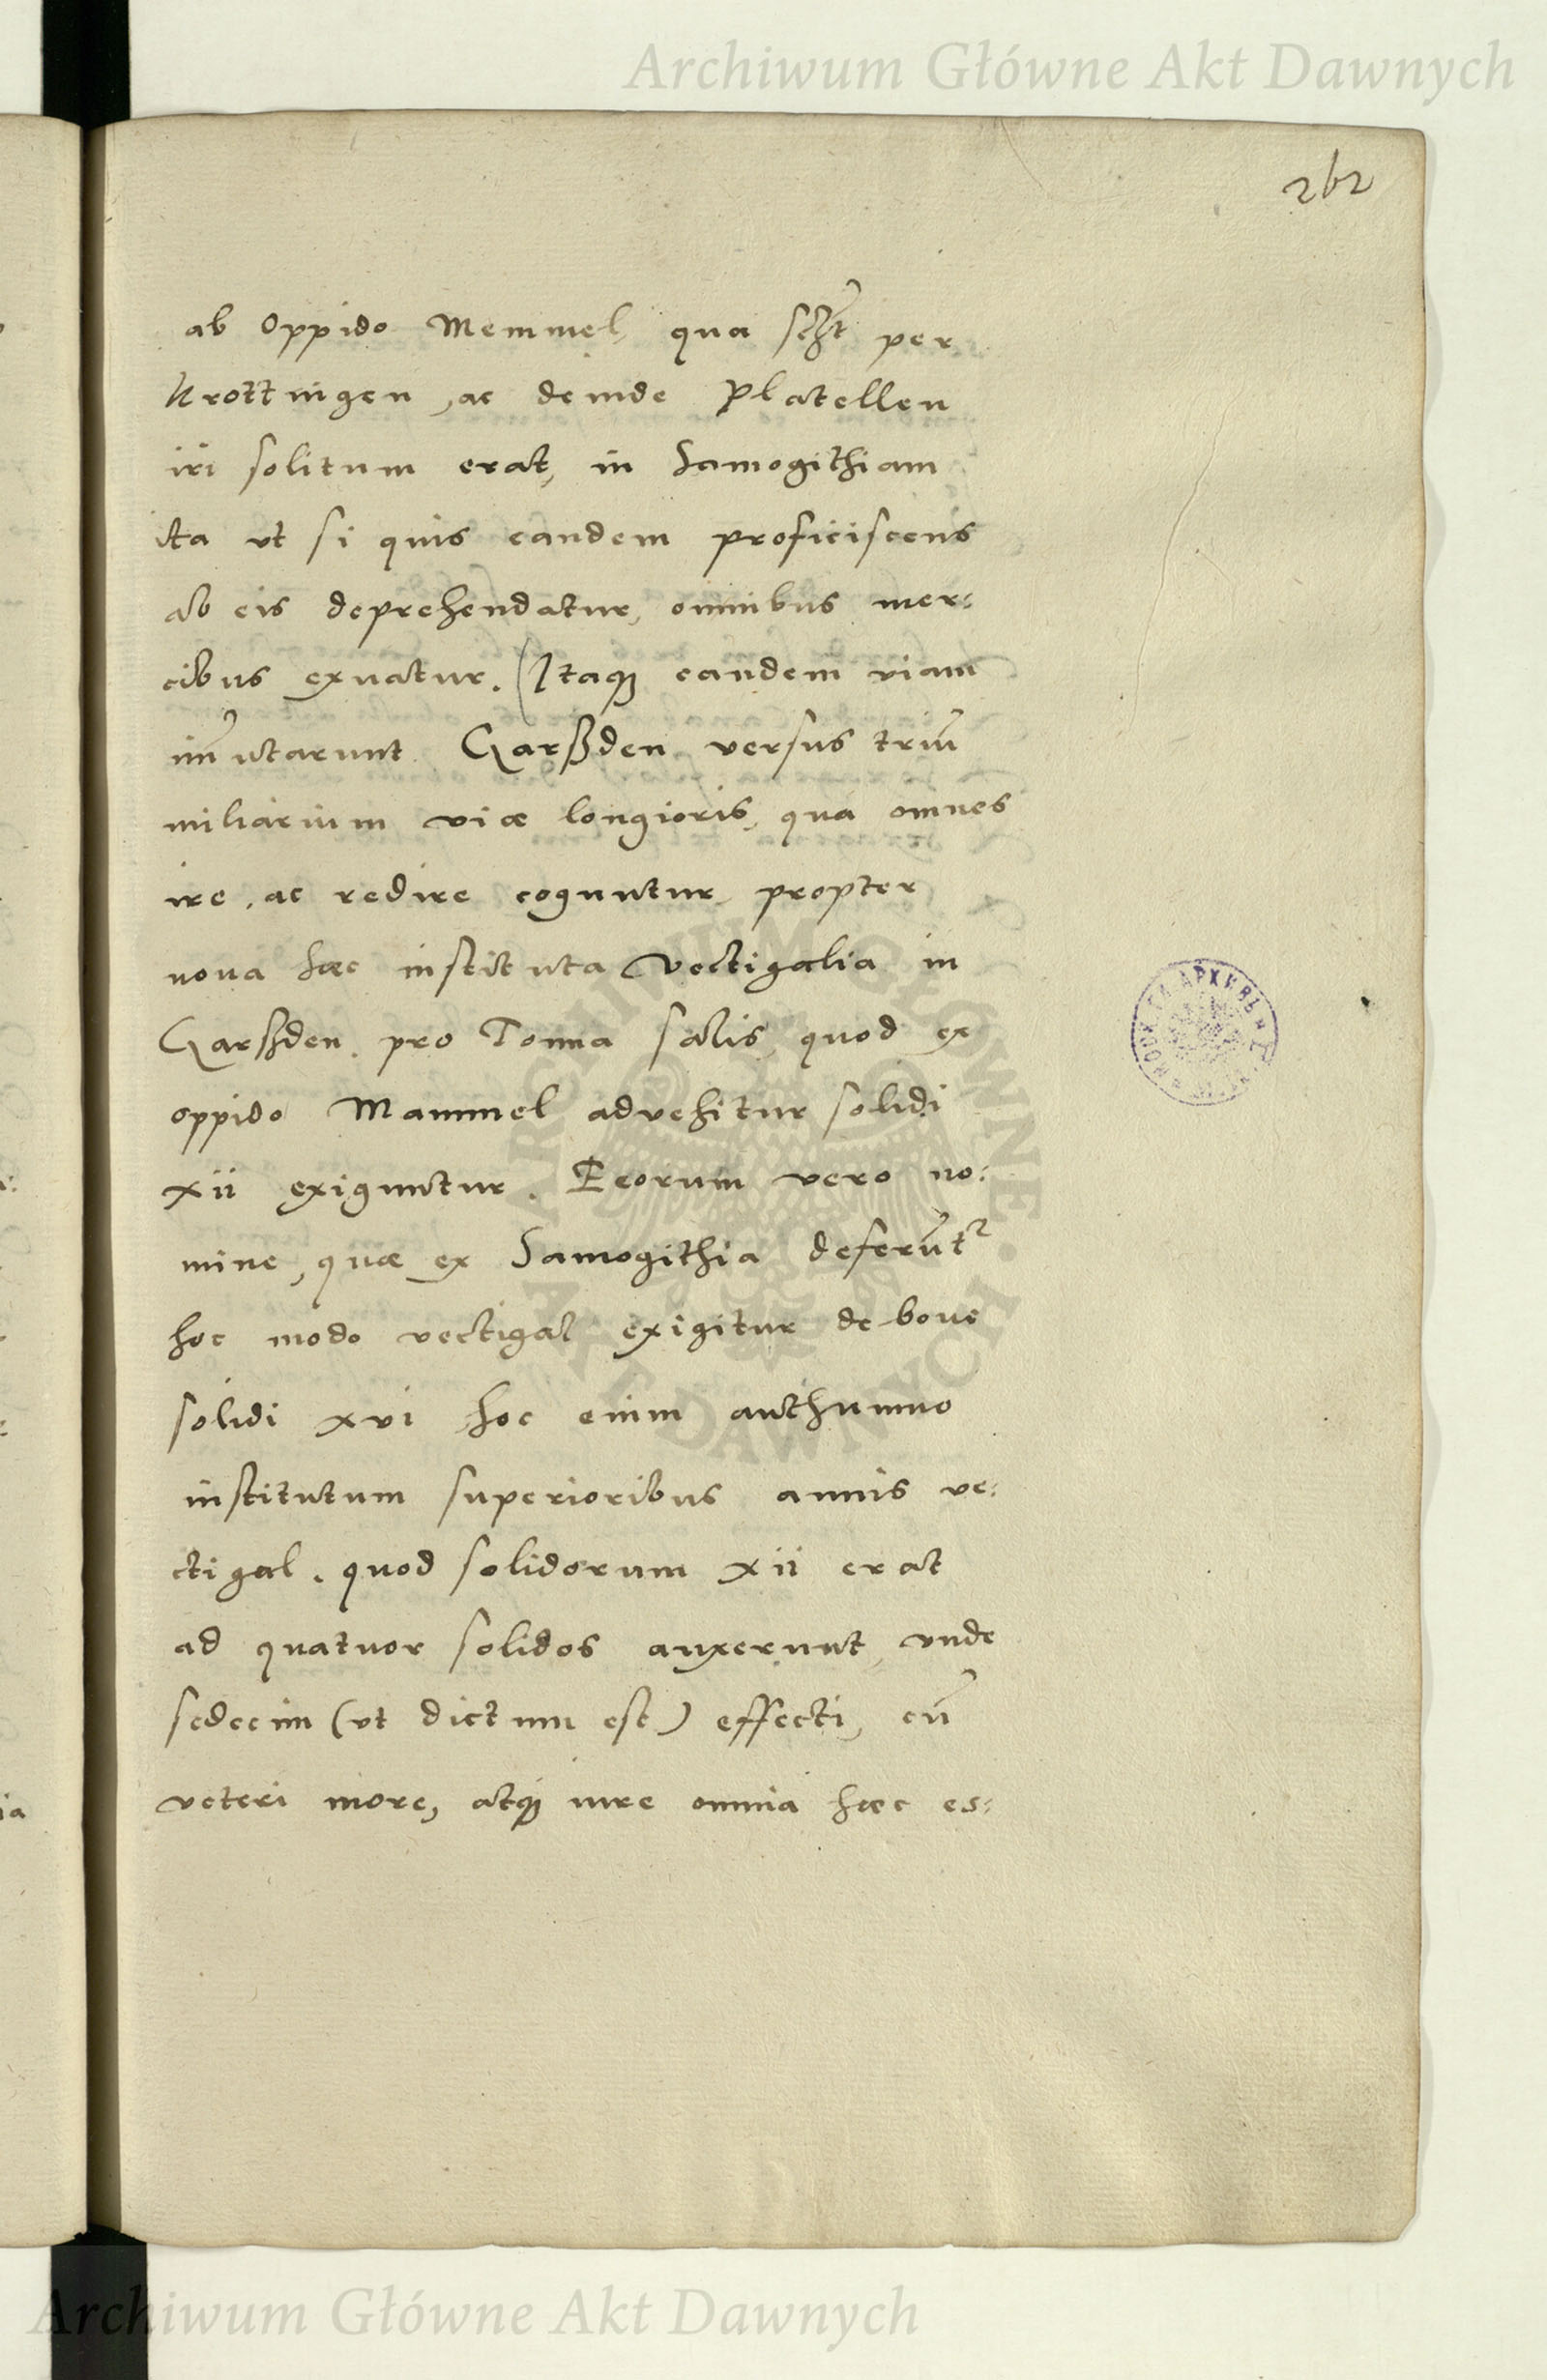 Archiwum Główne Akt Dawnych
262
ab Oppido Memmel, qua per
Krottingen, ac deinde Platellen
iri solitum erat, in Samogithiam
ita vt si quis eandem proficiscens
ab eis deprehendatur, omnibus mer:
cibus exuatur. Itaqꝫ eandem viam
im̃utarunt Garßden versus triũ
miliarium viæ longioris, qua omnes
ire, ac redire coguntur propter
noua hæc instituta Vectigalia in
Garßden. pro Tonna salis, quod ex
oppido Mammel advehitur solidi
xii exiguntur. Eeorum vero no:
mine, quæ ex Samogithia deferũtr
hoc modo vectigal exigitur de boue
solidi xvi hoc enim authumno
institutum superioribus annis ve:
ctigal. quod solidorum xii erat
ad quatuor solidos auxerunt, vnde
sedecim (vt dictum est) effecti, cũ
veteri more, atqꝫ iure omnia hæc es:
ARCHIWUM GŁÓWNE AKT DAWNYCH
Archiwum Główne Akt Dawnych